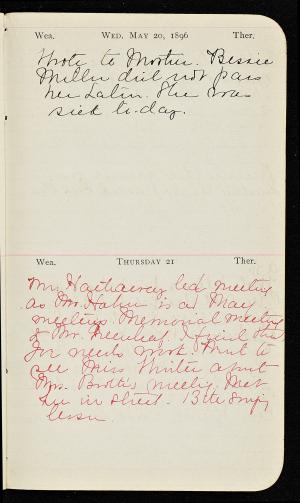 Wea. WED. MAY 20, 1896 Ther.
Wrote to Mother. Bessie
Miller did not pass
her Latin. She was
sick to-day.
Wea. THURSDAY 21 Ther.
Mrs. Hathaway led meeting
as Mr. Hahn is at May
meeting. Memorial meeting
of Mr. Greenleaf. I find
for needs work. Must to
see Miss Winter about
Mrs. meeting. Met
her in street.
lesson.